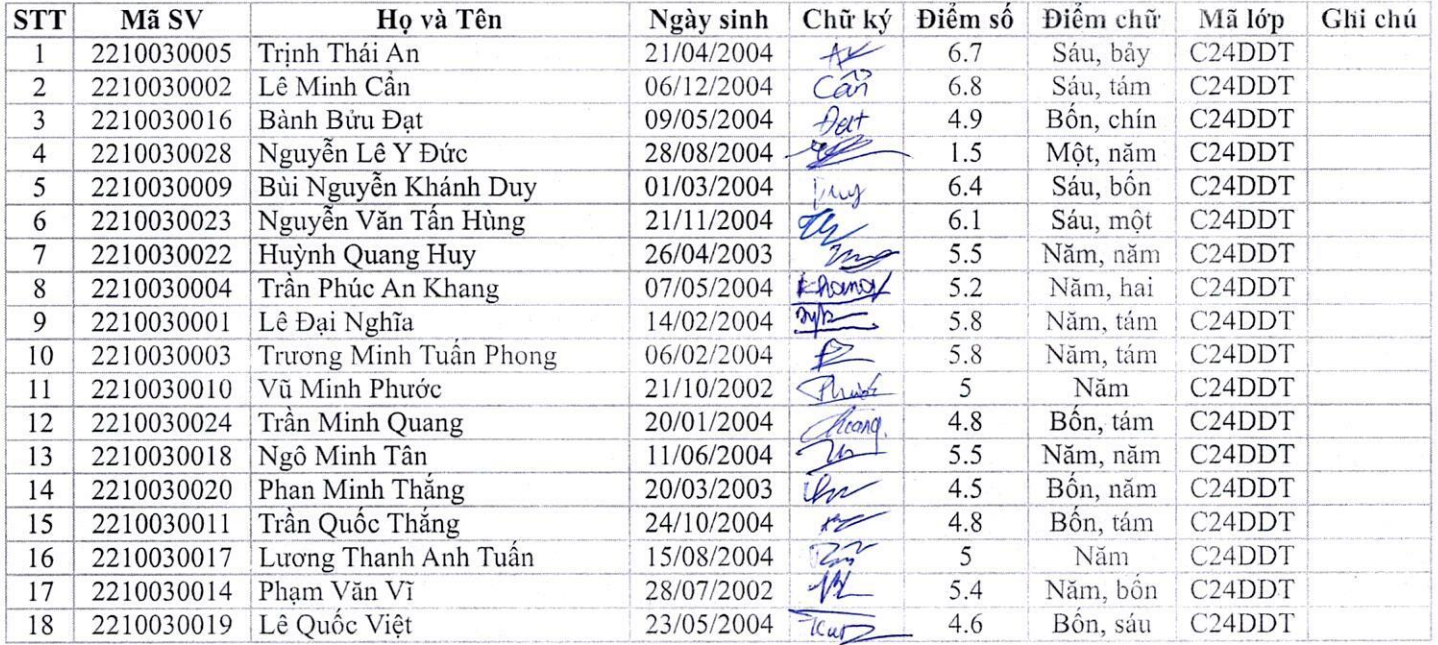 STT Mã SV Họ và Tên Ngày sinh Chữ ký Điểm số Điểm chữ Mã lớp Ghi chú
1 2210030005 Trịnh Thái An 21/04/2004 6.7 Sáu, bảy C24DDT
2 2210030002 Lê Minh Cẩn 06/12/2004 Cẩn 6.8 Sáu, tám C24DDT
3 2210030016 Bành Bửu Đạt 09/05/2004 Đạt 4.9 Bốn, chín C24DDT
4 2210030028 Nguyễn Lê Y Đức 28/08/2004 1.5 Một, năm C24DDT
5 2210030009 Bùi Nguyễn Khánh Duy 01/03/2004 Duy 6.4 Sáu, bốn C24DDT
6 2210030023 Nguyễn Văn Tấn Hùng 21/11/2004 6.1 Sáu, một C24DDT
7 2210030022 Huỳnh Quang Huy 26/04/2003 5.5 Năm, năm C24DDT
8 2210030004 Trần Phúc An Khang 07/05/2004 Khang 5.2 Năm, hai C24DDT
9 2210030001 Lê Đại Nghĩa 14/02/2004 5.8 Năm, tám C24DDT
10 2210030003 Trương Minh Tuấn Phong 06/02/2004 5.8 Năm, tám C24DDT
11 2210030010 Vũ Minh Phước 21/10/2002 Phước 5 Năm C24DDT
12 2210030024 Trần Minh Quang 20/01/2004 4.8 Bốn, tám C24DDT
13 2210030018 Ngô Minh Tân 11/06/2004 5.5 Năm, năm C24DDT
14 2210030020 Phan Minh Thắng 20/03/2003 4.5 Bốn, năm C24DDT
15 2210030011 Trần Quốc Thắng 24/10/2004 4.8 Bốn, tám C24DDT
16 2210030017 Lương Thanh Anh Tuấn 15/08/2004 5 Năm C24DDT
17 2210030014 Phạm Văn Vĩ 28/07/2002 5.4 Năm, bốn C24DDT
18 2210030019 Lê Quốc Việt 23/05/2004 4.6 Bốn, sáu C24DDT